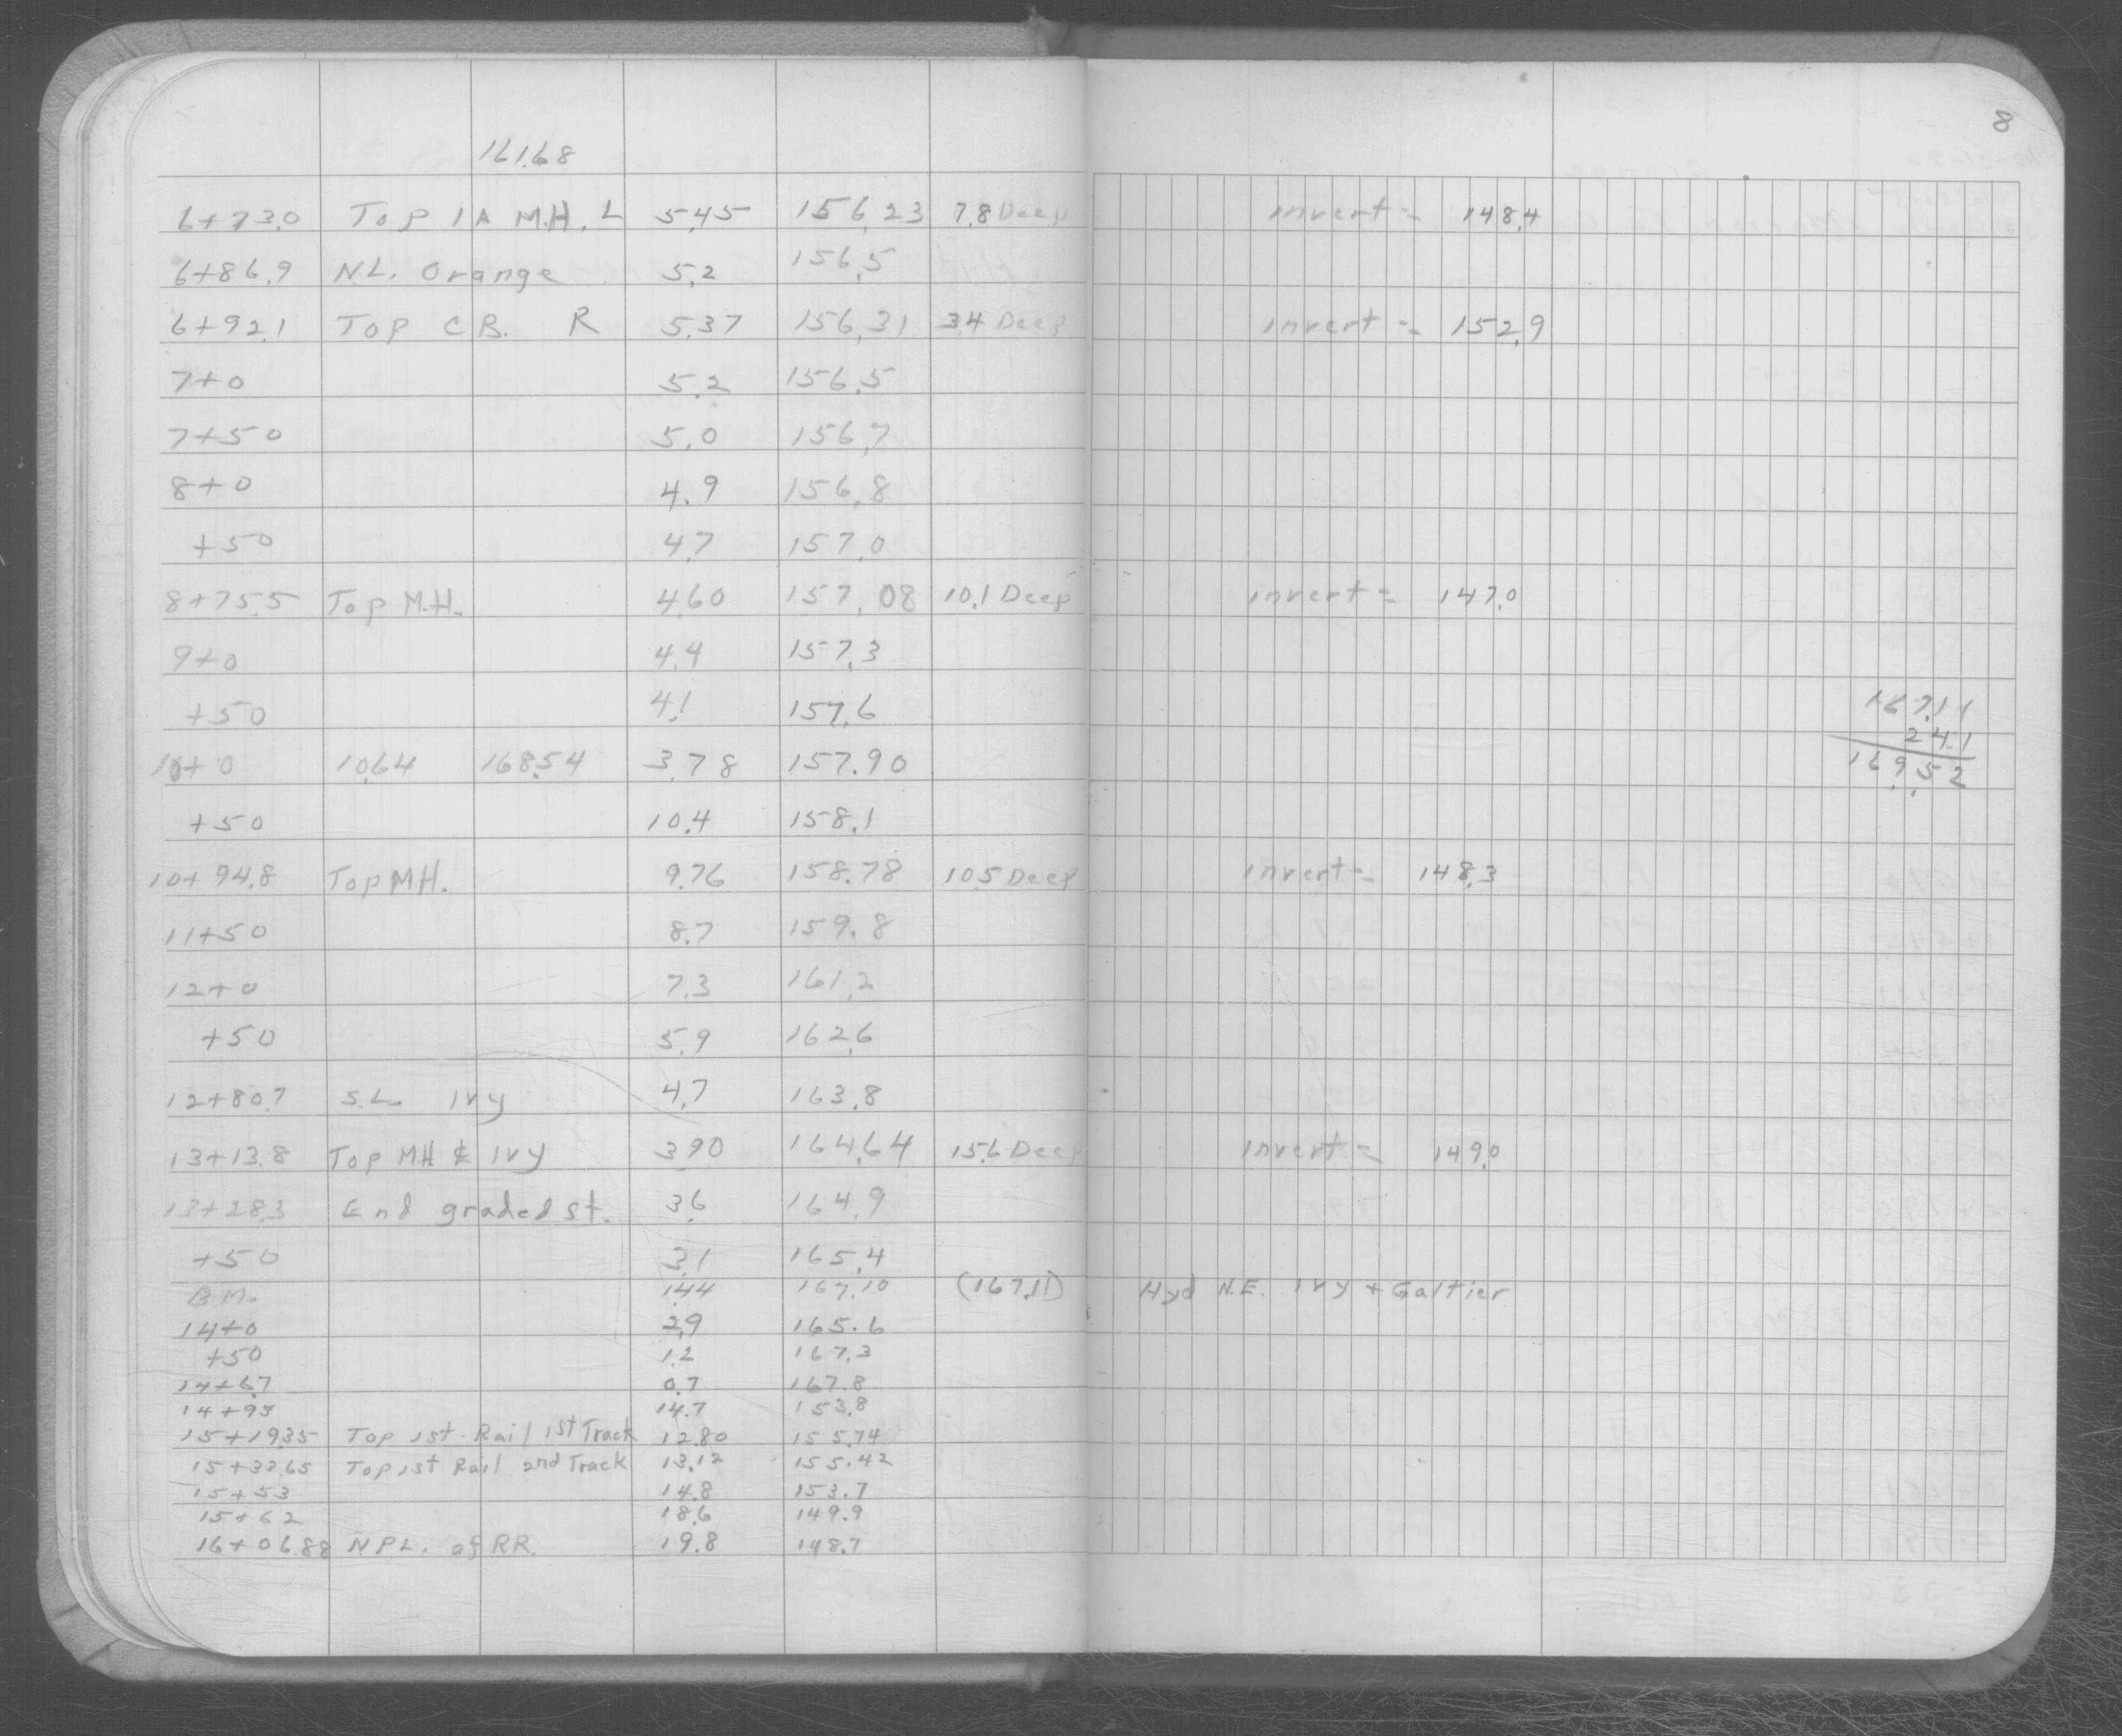 8
161.68
6+73.0 Top 1A M.H. L 5.45 156.23 7.8 Deep invert = 148.4
6+86.9 N.L. Orange 5.2 156.5
6+92.1 Top C.B. R 5.37 156.31 3.4 Deep invert = 152.9
7+0 5.2 156.5
7+50 5.0 156.7
8+0 4.9 156.8
+50 4.7 157.0
8+75.5 Top M.H. 4.60 157.08 10.1 Deep invert = 147.0
9+0 4.4 157.3
+50 4.1 157.6
167.11
2.41
169.52
10+0 10.64 168.54 3.78 157.90
+50 10.4 158.1
10+94.8 Top M.H. 9.76 158.78 10.5 Deep invert = 148.3
11+50 8.7 159.8
12+0 7.3 161.2
+50 5.9 162.6
12+80.7 S.L. Ivy 4.7 163.8
13+13.8 Top MH ℄ Ivy 3.90 164.64 15.6 Deep invert = 149.0
13+28.3 End graded st. 3.6 164.9
+50 3.1 165.4
B.M. 1.44 167.10 (167.11) Hyd N.E. Ivy + Galtier
14+0 2.9 165.6
+50 1.2 167.3
14+67 0.7 167.8
14+93 14.7 153.8
15+19.35 Top 1st Rail 1st Track 12.80 155.74
15+32.65 Top 1st Rail 2nd Track 13.12 155.42
15+53 14.8 153.7
15+62 18.6 149.9
16+06.88 NPL. of RR. 19.8 148.7